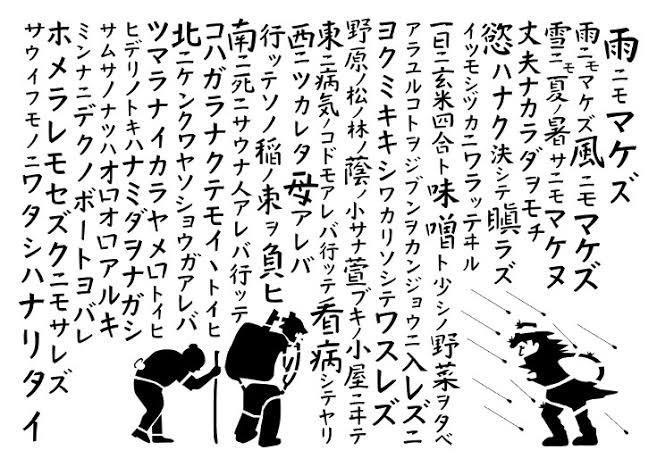 雨ニモマケズ
雨ニモマケズ風ニモマケズ
雪ニモ夏ノ暑サニモマケヌ
丈夫ナカラダヲモチ
慾ハナク決シテ瞋ラズ
イツモシヅカニワラッテヰル
一日ニ玄米四合ト味噌ト少シノ野菜ヲタベ
アラユルコトヲジブンヲカンジョウニ入レズニ
ヨクミキキシワカリソシテワスレズ
野原ノ松ノ林ノ蔭ノ小サナ萱ブキノ小屋ニヰテ
東ニ病気ノコドモアレバ行ッテ看病シテヤリ
西ニツカレタ母アレバ
行ッテソノ稲ノ束ヲ負ヒ
南ニ死ニサウナ人アレバ行ッテ
コハガラナクテモイヽトイヒ
北ニケンクヮヤソショウガアレバ
ツマラナイカラヤメロトイヒ
ヒデリノトキハナミダヲナガシ
サムサノナツハオロオロアルキ
ミンナニデクノボートヨバレ
ホメラレモセズクニモサレズ
サウイフモノニワタシハナリタイ